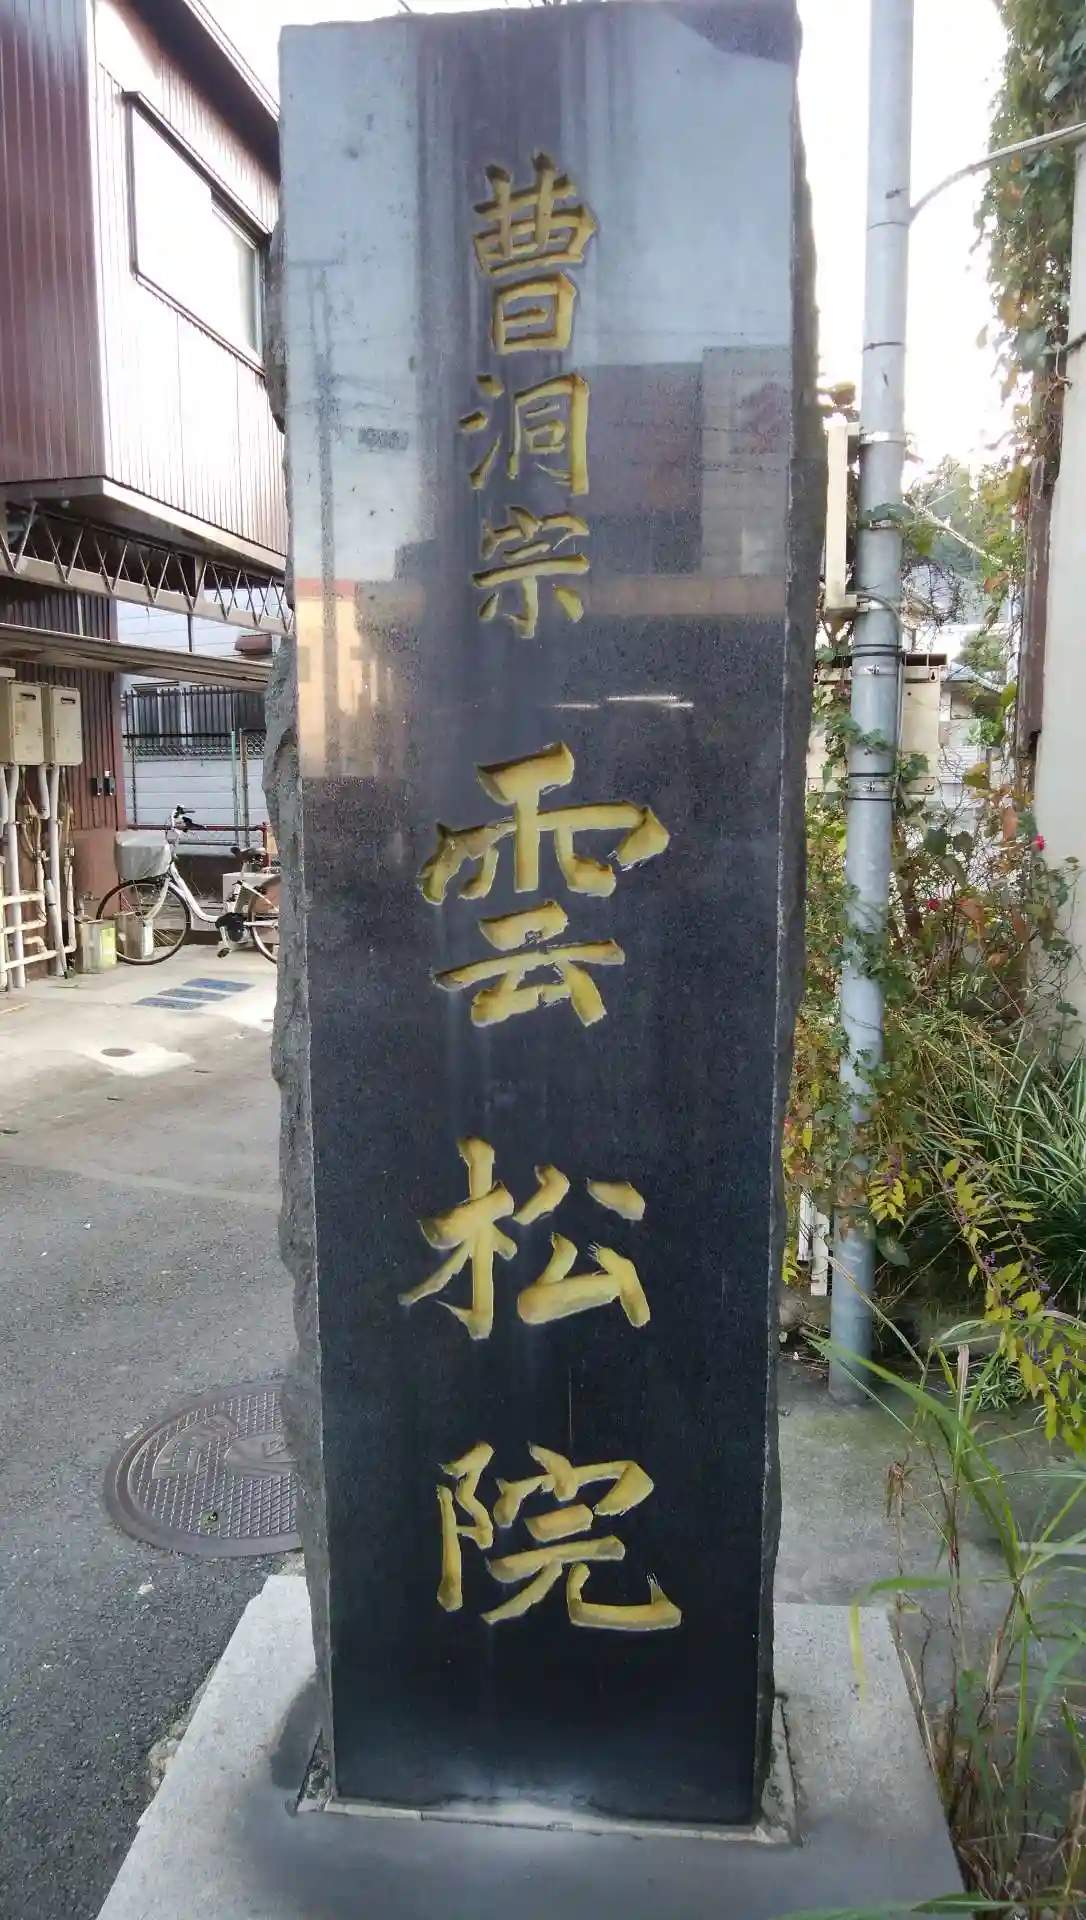 曹洞宗 雲松院